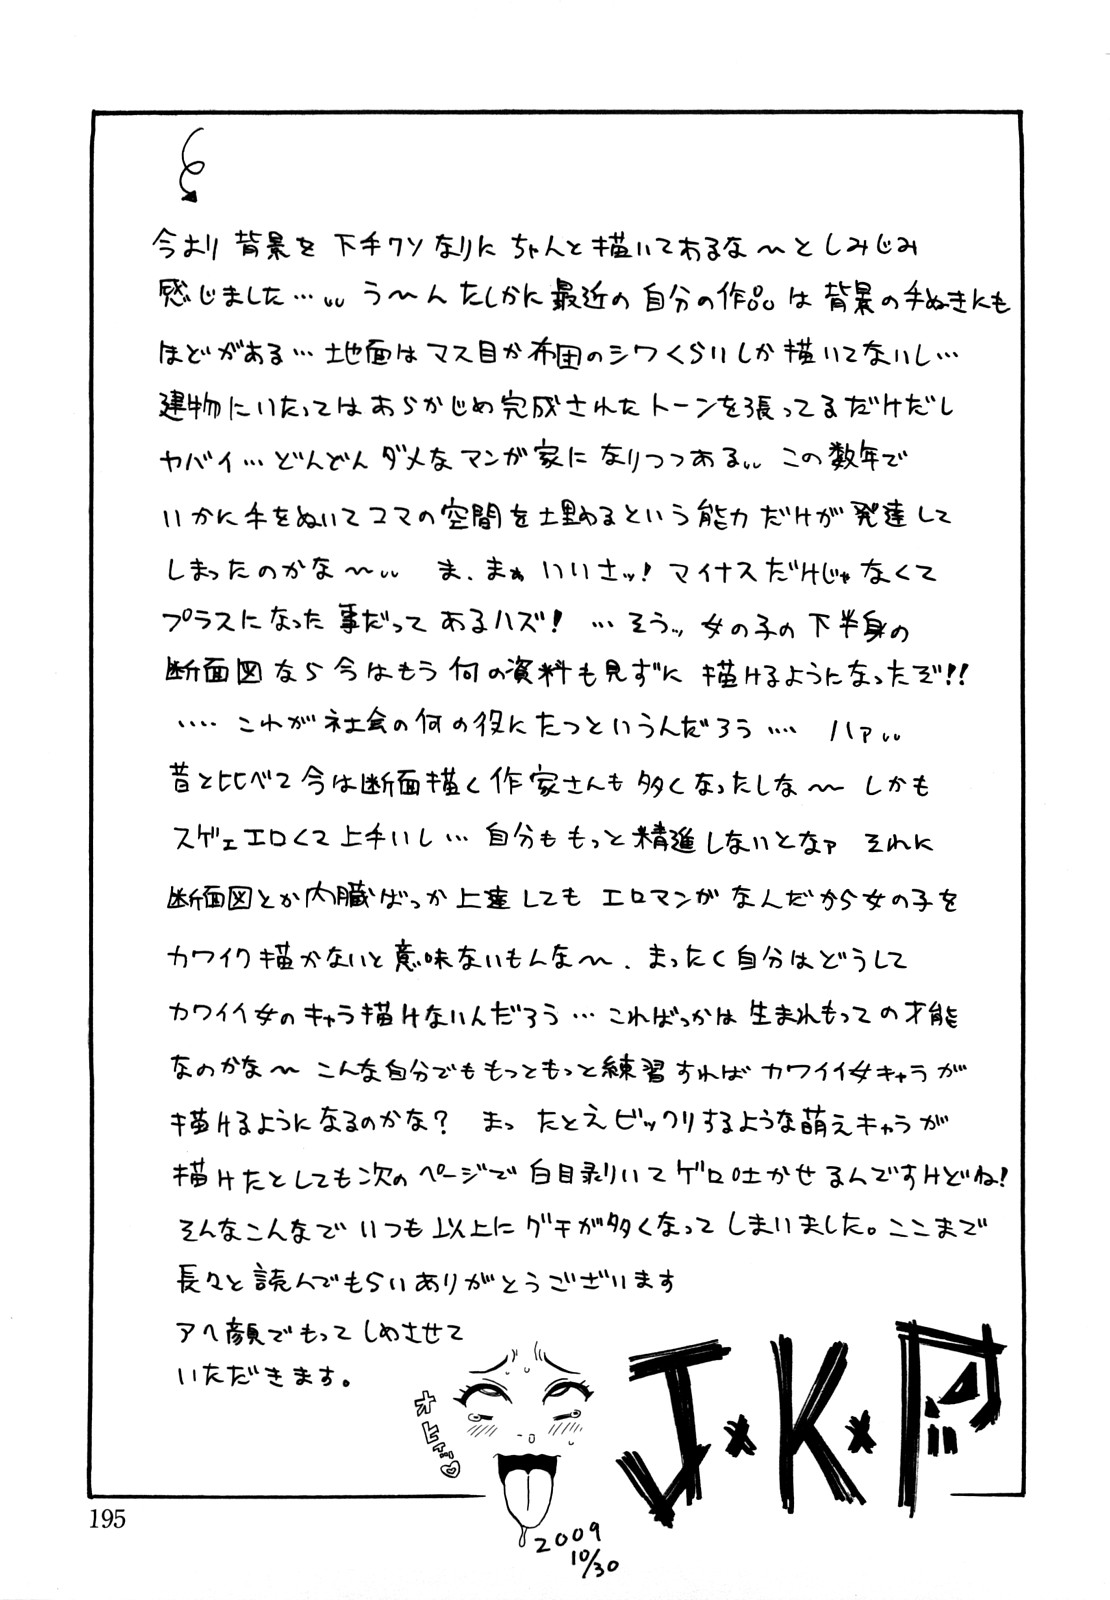 今より背景を下手クソなりにちゃんと描いてあるな〜としみじみ
感じました…。。う〜んたしかに最近の自分の作品は背景の手ぬきにも
ほどがある…地面はマス目か布団のシワくらいしか描いてないし…
建物にいたってはあらかじめ完成されたトーンを張ってるだけだし
ヤバイ…どんどんダメなマンガ家になりつつある。。この数年で
いかに手をぬいてコマの空間を埋めるという能力だけが発達して
しまったのかな〜。。ま、まぁいいさッ!マイナスだけじゃなくて
プラスになった事だってあるハズ!…そうッ女の子の下半身の
断面図なら今はもう何の資料も見ずに描けるようになったぞ!!
‥‥これが社会の何の役にたつというんだろう‥‥ハァ。。
昔と比べて今は断面描く作家さんも多くなったしな〜しかも
スゲェエロくて上手いし…自分ももっと精進しないとなァ それに
断面図とか内臓ばっか上達してもエロマンガなんだから女の子を
カワイク描かないと意味ないもんな〜、まったく自分はどうして
カワイイ女のキャラ描けないんだろう…こればっかは生まれもっての才能
なのかな〜こんな自分でももっともっと練習すればカワイイ女キャラが
描けるようになるのかな?まっ たとえビックリするような萌えキャラが
描けたとしても次のページで白目剥いてゲロ吐かせるんですけどね!
そんなこんなでいつも以上にグチが多くなってしまいました。ここまで
長々と読んでもらいありがとうございます
アヘ顔でもってしめさせて
いただきます。
オヒィ♡
J*K*P
2009
10/30
195